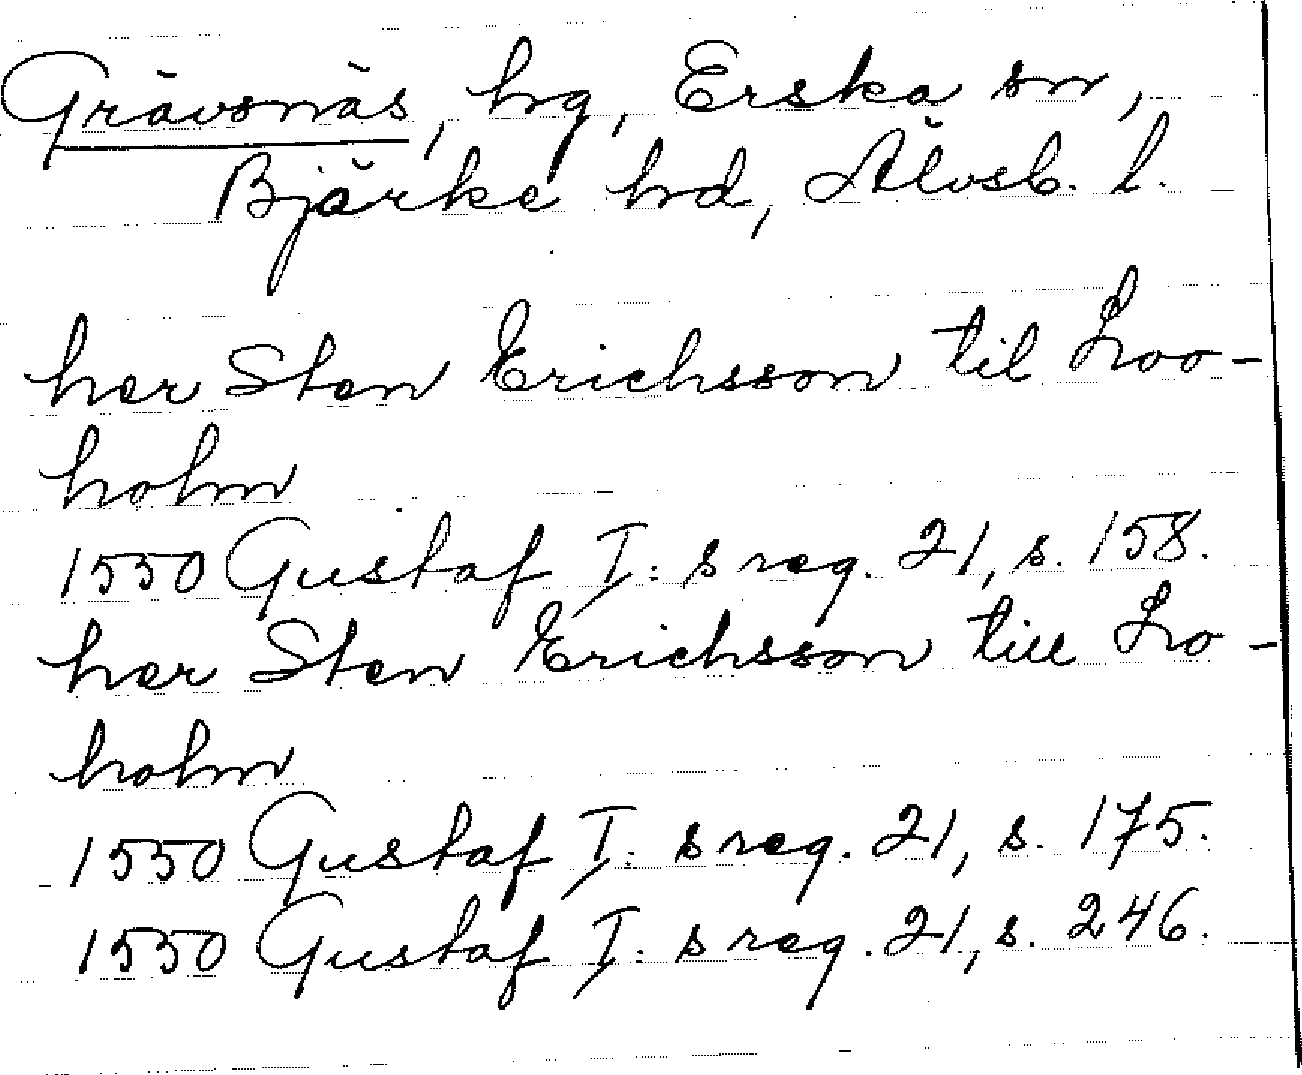 Grävsnäs, hg, Erska sn,
Bjärke hd, Älvsb. l.
her Sten Erichsson til Loo-
holm
1550 Gustaf I: s reg. 21, s. 158.
her Sten Erichsson till Lo-
holm
1550 Gustaf I: s reg. 21, s. 175.
1550 Gustaf I: s reg. 21, s. 246.